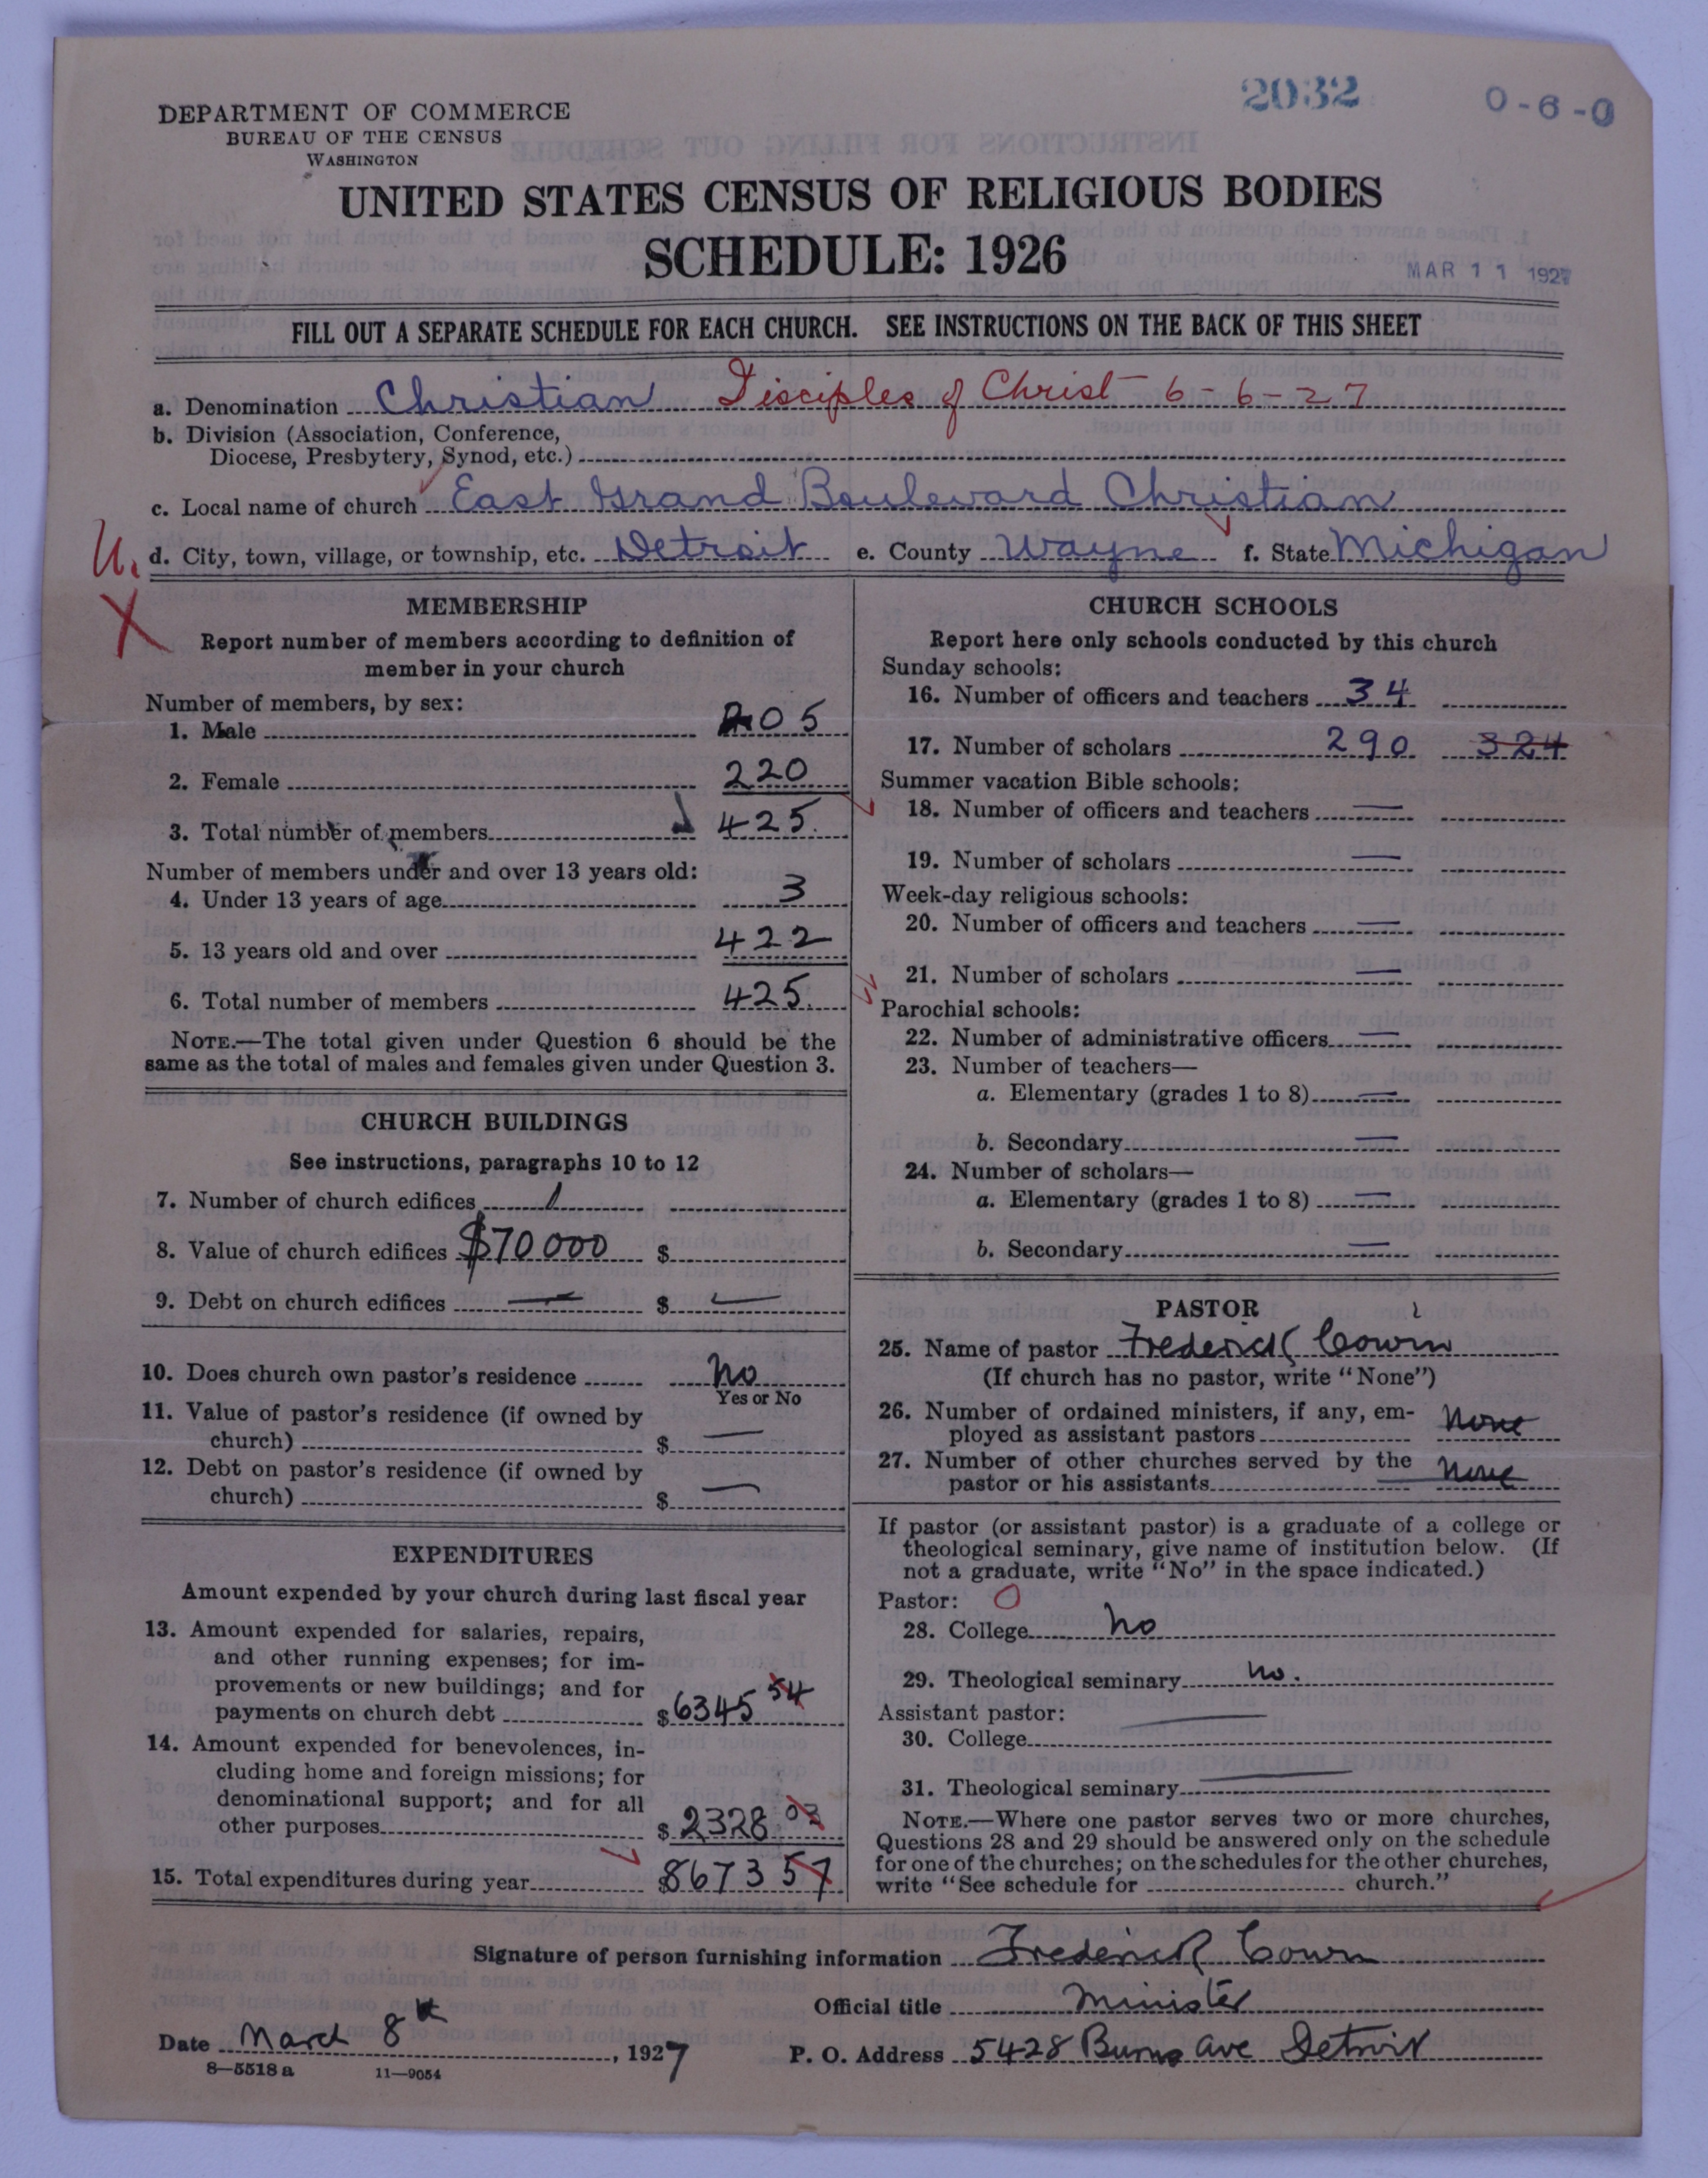 2032
0-6-0
DEPARTMENT OF COMMERCE
BUREAU OF THE CENSUS
WASHINGTON
UNITED STATES CENSUS OF RELIGIOUS BODIES
SCHEDULE: 1926
MAR 11 1927
FILL OUT A SEPARATE SCHEDULE FOR EACH CHURCH. SEE INSTRUCTIONS ON THE BACK OF THIS SHEET
a. Denomination Christian Disciples of Christ 6-6-27
b. Division (Association, Conference,
Diocese, Presbytery, Synod, etc.)
c. Local name of church East Grand Boulevard Christian
U. d. City, town, village, or township, etc. Detroit e. County Wayne f. State Michigan
X
MEMBERSHIP
Report number of members according to definition of
member in your church
Number of members, by sex:
1. Male 205
2. Female 220
3. Total number of members 425.
Number of members under and over 13 years old:
4. Under 13 years of age 3
5. 13 years old and over 422
6. Total number of members 425.
NOTE.—The total given under Question 6 should be the
same as the total of males and females given under Question 3.
CHURCH BUILDINGS
See instructions, paragraphs 10 to 12
7. Number of church edifices 1
8. Value of church edifices $70000 $
9. Debt on church edifices — $ —
10. Does church own pastor's residence No
Yes or No
11. Value of pastor's residence (if owned by
church) $ —
12. Debt on pastor's residence (if owned by
church) $ —
EXPENDITURES
Amount expended by your church during last fiscal year
13. Amount expended for salaries, repairs,
and other running expenses; for im-
provements or new buildings; and for
payments on church debt $6345 54
14. Amount expended for benevolences, in-
cluding home and foreign missions; for
denominational support; and for all
other purposes $ 2328 03
15. Total expenditures during year $8673 57
CHURCH SCHOOLS
Report here only schools conducted by this church
Sunday schools:
16. Number of officers and teachers 34
17. Number of scholars 290 324
Summer vacation Bible schools:
18. Number of officers and teachers —
19. Number of scholars —
Week-day religious schools:
20. Number of officers and teachers —
21. Number of scholars —
Parochial schools:
22. Number of administrative officers —
23. Number of teachers—
a. Elementary (grades 1 to 8) —
b. Secondary —
24. Number of scholars—
a. Elementary (grades 1 to 8) —
b. Secondary —
PASTOR
25. Name of pastor Frederick Cowin
(If church has no pastor, write "None")
26. Number of ordained ministers, if any, em-
ployed as assistant pastors None
27. Number of other churches served by the
pastor or his assistants None
If pastor (or assistant pastor) is a graduate of a college or
theological seminary, give name of institution below. (If
not a graduate, write "No" in the space indicated.)
Pastor: O
28. College No
29. Theological seminary No.
Assistant pastor:
30. College —
31. Theological seminary —
NOTE.—Where one pastor serves two or more churches,
Questions 28 and 29 should be answered only on the schedule
for one of the churches; on the schedules for the other churches,
write "See schedule for church."
Signature of person furnishing information Frederick Cowin
Official title Minister
Date March 8th, 1927
P. O. Address 5428 Burns Ave Detroit
8-5518 a 11-9054